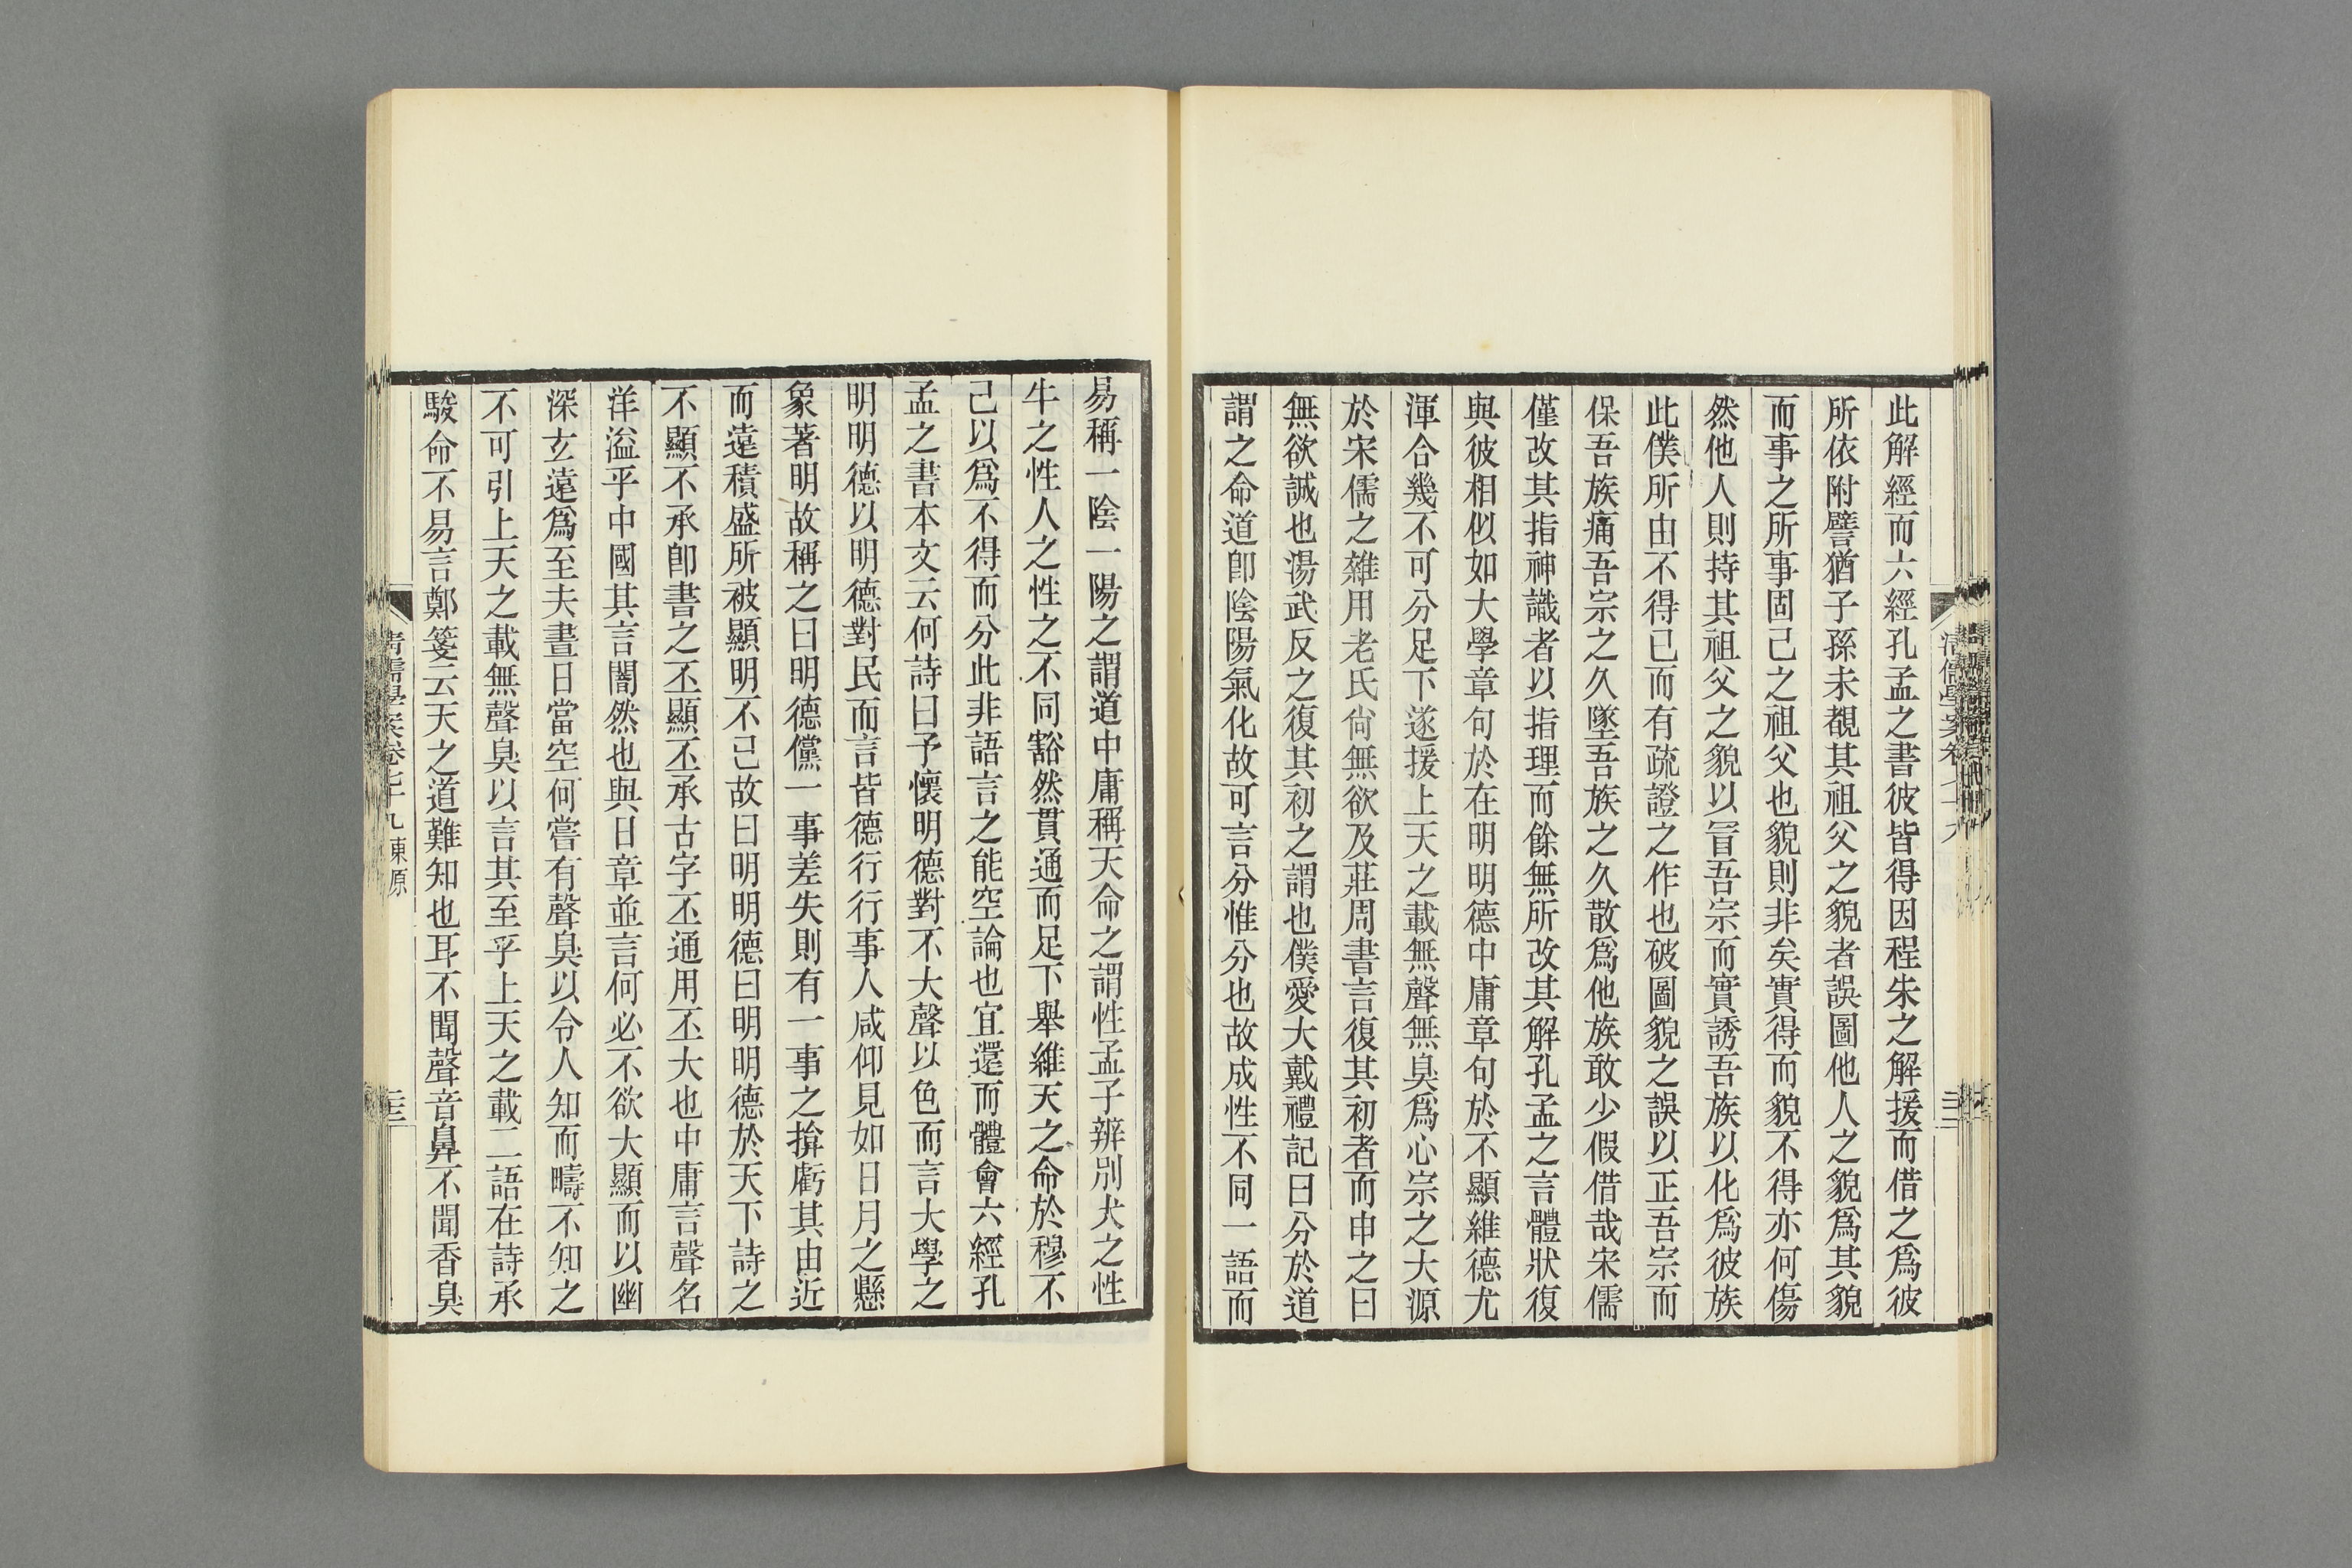 此解經而六經孔孟之書彼皆得因程朱之解援而借之爲彼
所依附譬猶子孫未覩其祖父之貌者誤圖他人之貌爲其貌
而事之所事固己之祖父也貌則非矣實得而貌不得亦何傷
然他人則持其祖父之貌以冒吾宗而實誘吾族以化爲彼族
此僕所由不得已而有疏證之作也破圖貌之誤以正吾宗而
保吾族痛吾宗之久墜吾族之久散爲他族敢少假借哉宋儒
僅改其指神識者以指理而餘無所改其解孔孟之言體狀復
與彼相似如大學章句於在明明德中庸章句於不顯維德尤
渾合幾不可分足下遂援上天之載無聲無臭爲心宗之大源
於宋儒之雜用老氏尙無欲及莊周書言復其初者而申之曰
無欲誠也湯武反之復其初之謂也僕愛大戴禮記曰分於道
謂之命道卽陰陽氣化故可言分惟分也故成性不同一語而
易稱一陰一陽之謂道中庸稱天命之謂性孟子辨別犬之性
牛之性人之性之不同豁然貫通而足下舉維天之命於穆不
己以爲不得而分此非語言之能空論也宜還而體會六經孔
孟之書本文云何詩曰予懷明德對不大聲以色而言大學之
明明德以明德對民而言皆德行行事人咸仰見如日月之懸
象著明故稱之曰明德儻一事差失則有一事之揜虧其由近
而遠積盛所被顯明不已故曰明明德曰明明德於天下詩之
不顯不承卽書之丕顯丕承古字丕通用丕大也中庸言聲名
洋溢乎中國其言闇然也與日章並言何必不欲大顯而以幽
深玄遠爲至夫晝日當空何嘗有聲臭以令人知而疇不知之
不可引上天之載無聲臭以言其至乎上天之載二語在詩承
駿命不易言鄭箋云天之道難知也耳不聞聲音鼻不聞香臭
清儒學案卷七十九東原